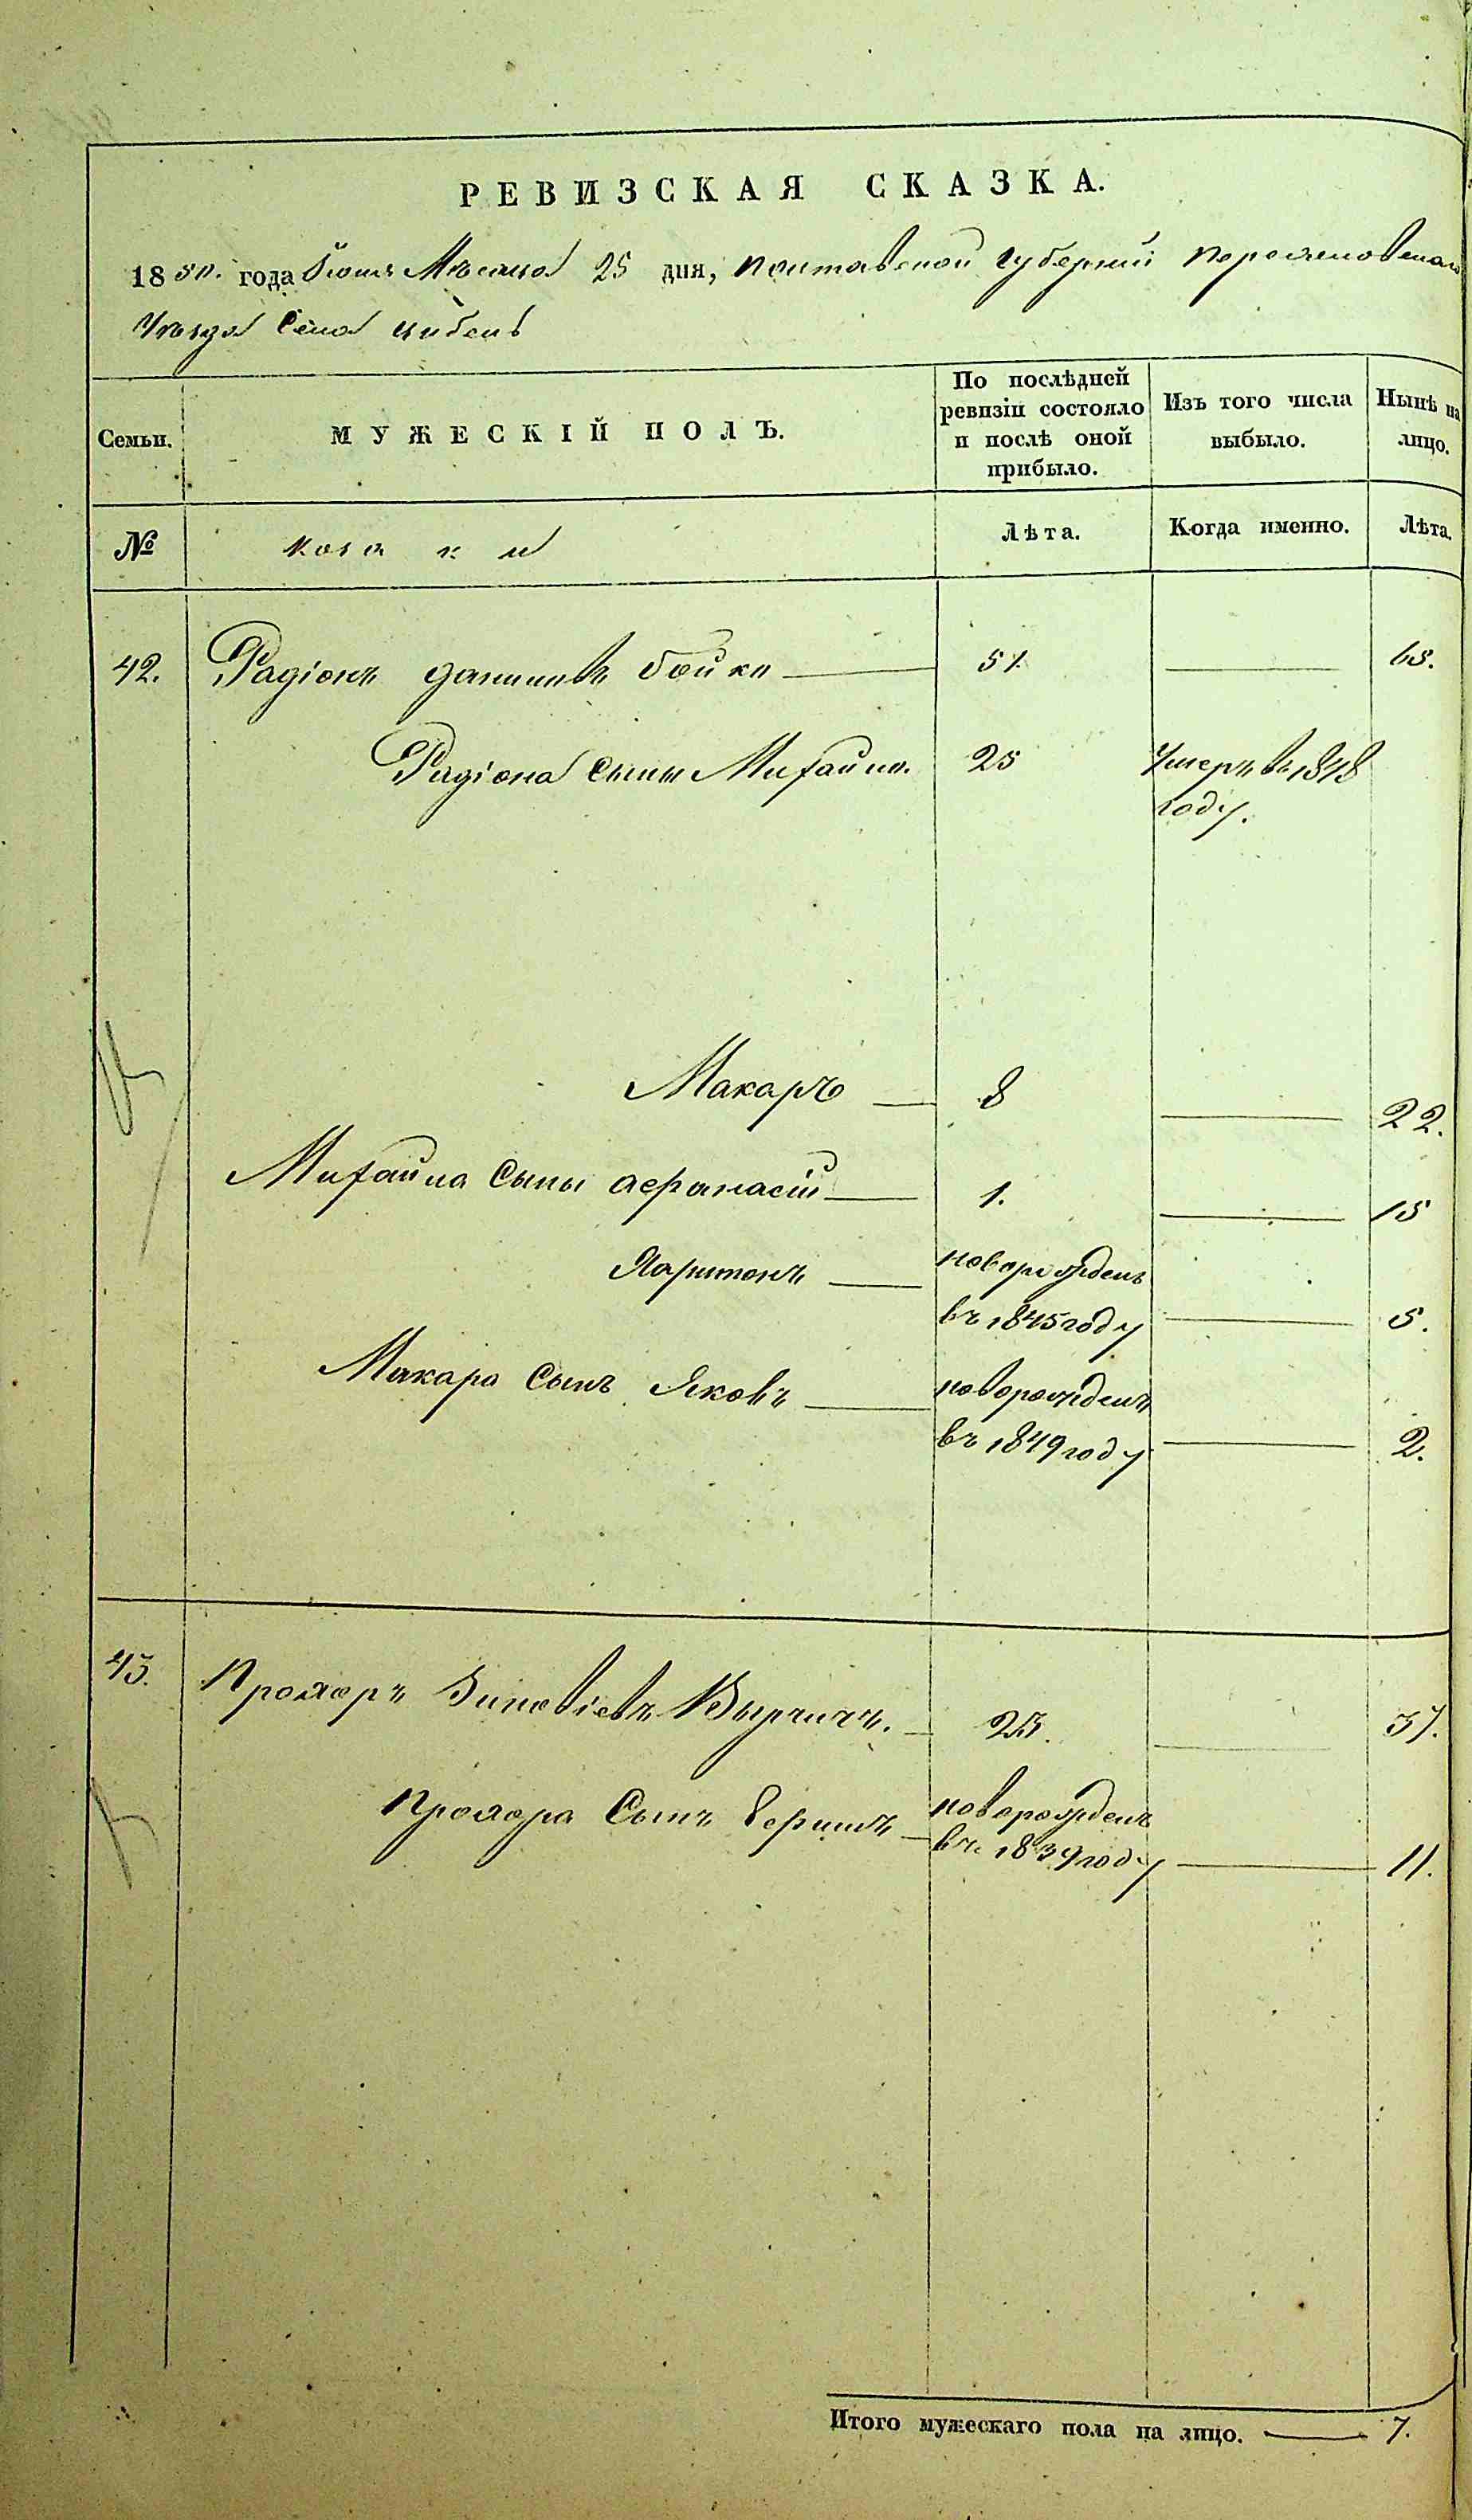 РЕВИЗСКАЯ СКАЗКА.
1850. года Июня Мѣсяца 25 дня, Полтавской Губерніи Переяславскаго
Уѣзда Села Цибель
Семьи. МУЖЕСКІЙ ПОЛЪ. По послѣдней ревизіи состояло и послѣ оной прибыло. Изъ того числа выбыло. Нынѣ на лицо.
№ козаки Лѣта. Когда именно. Лѣта.
42. Радіонъ Даниловъ Бойко 51. 65.
Радіона Сынъ Михайло. 25 Умеръ въ 1848
году.
Макаръ 8 22.
Михайла Сыны Афанасій 1. 15
Харитонъ новорожденъ
въ 1845 году 5.
Макара Сынъ Яковъ новорожденъ
въ 1849 году 2.
43. Прохоръ Зиновіевъ 23. 37.
Прохора Сынъ новорожденъ
въ 1839 году 11.
Итого мужескаго пола на лицо. 7.